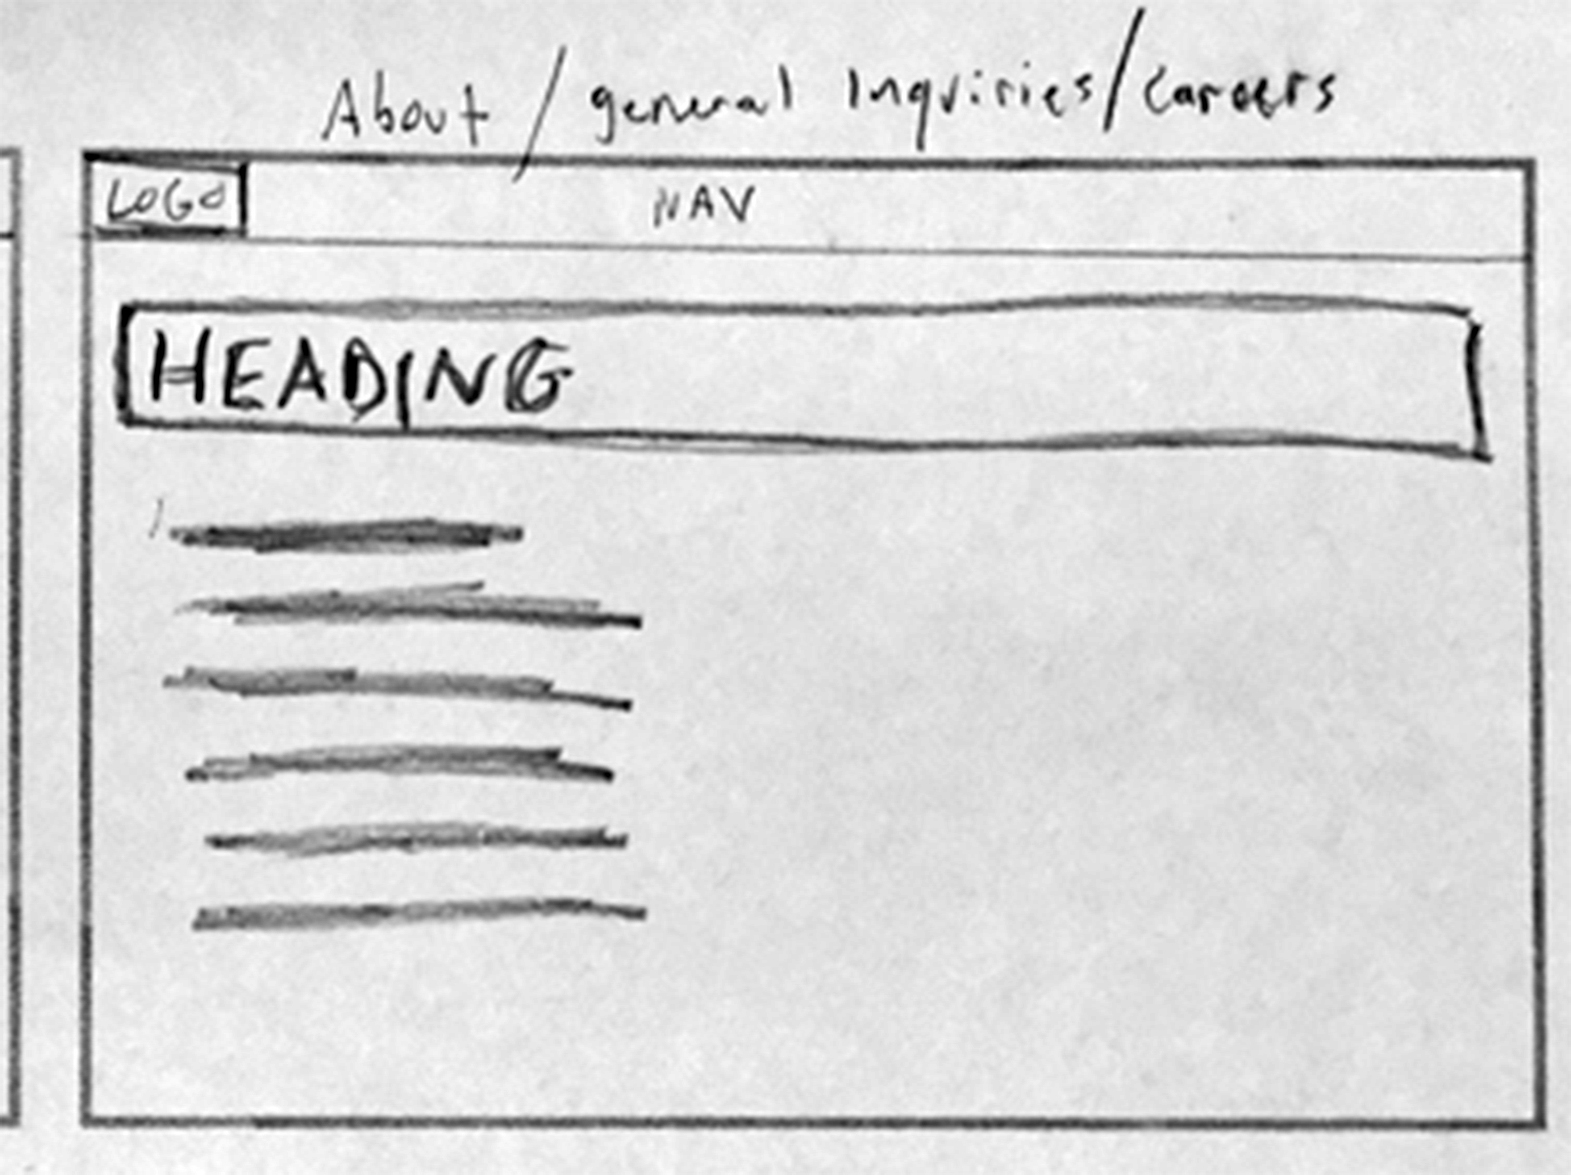 About / general Inquiries / careers
LOGO
NAV
HEADING